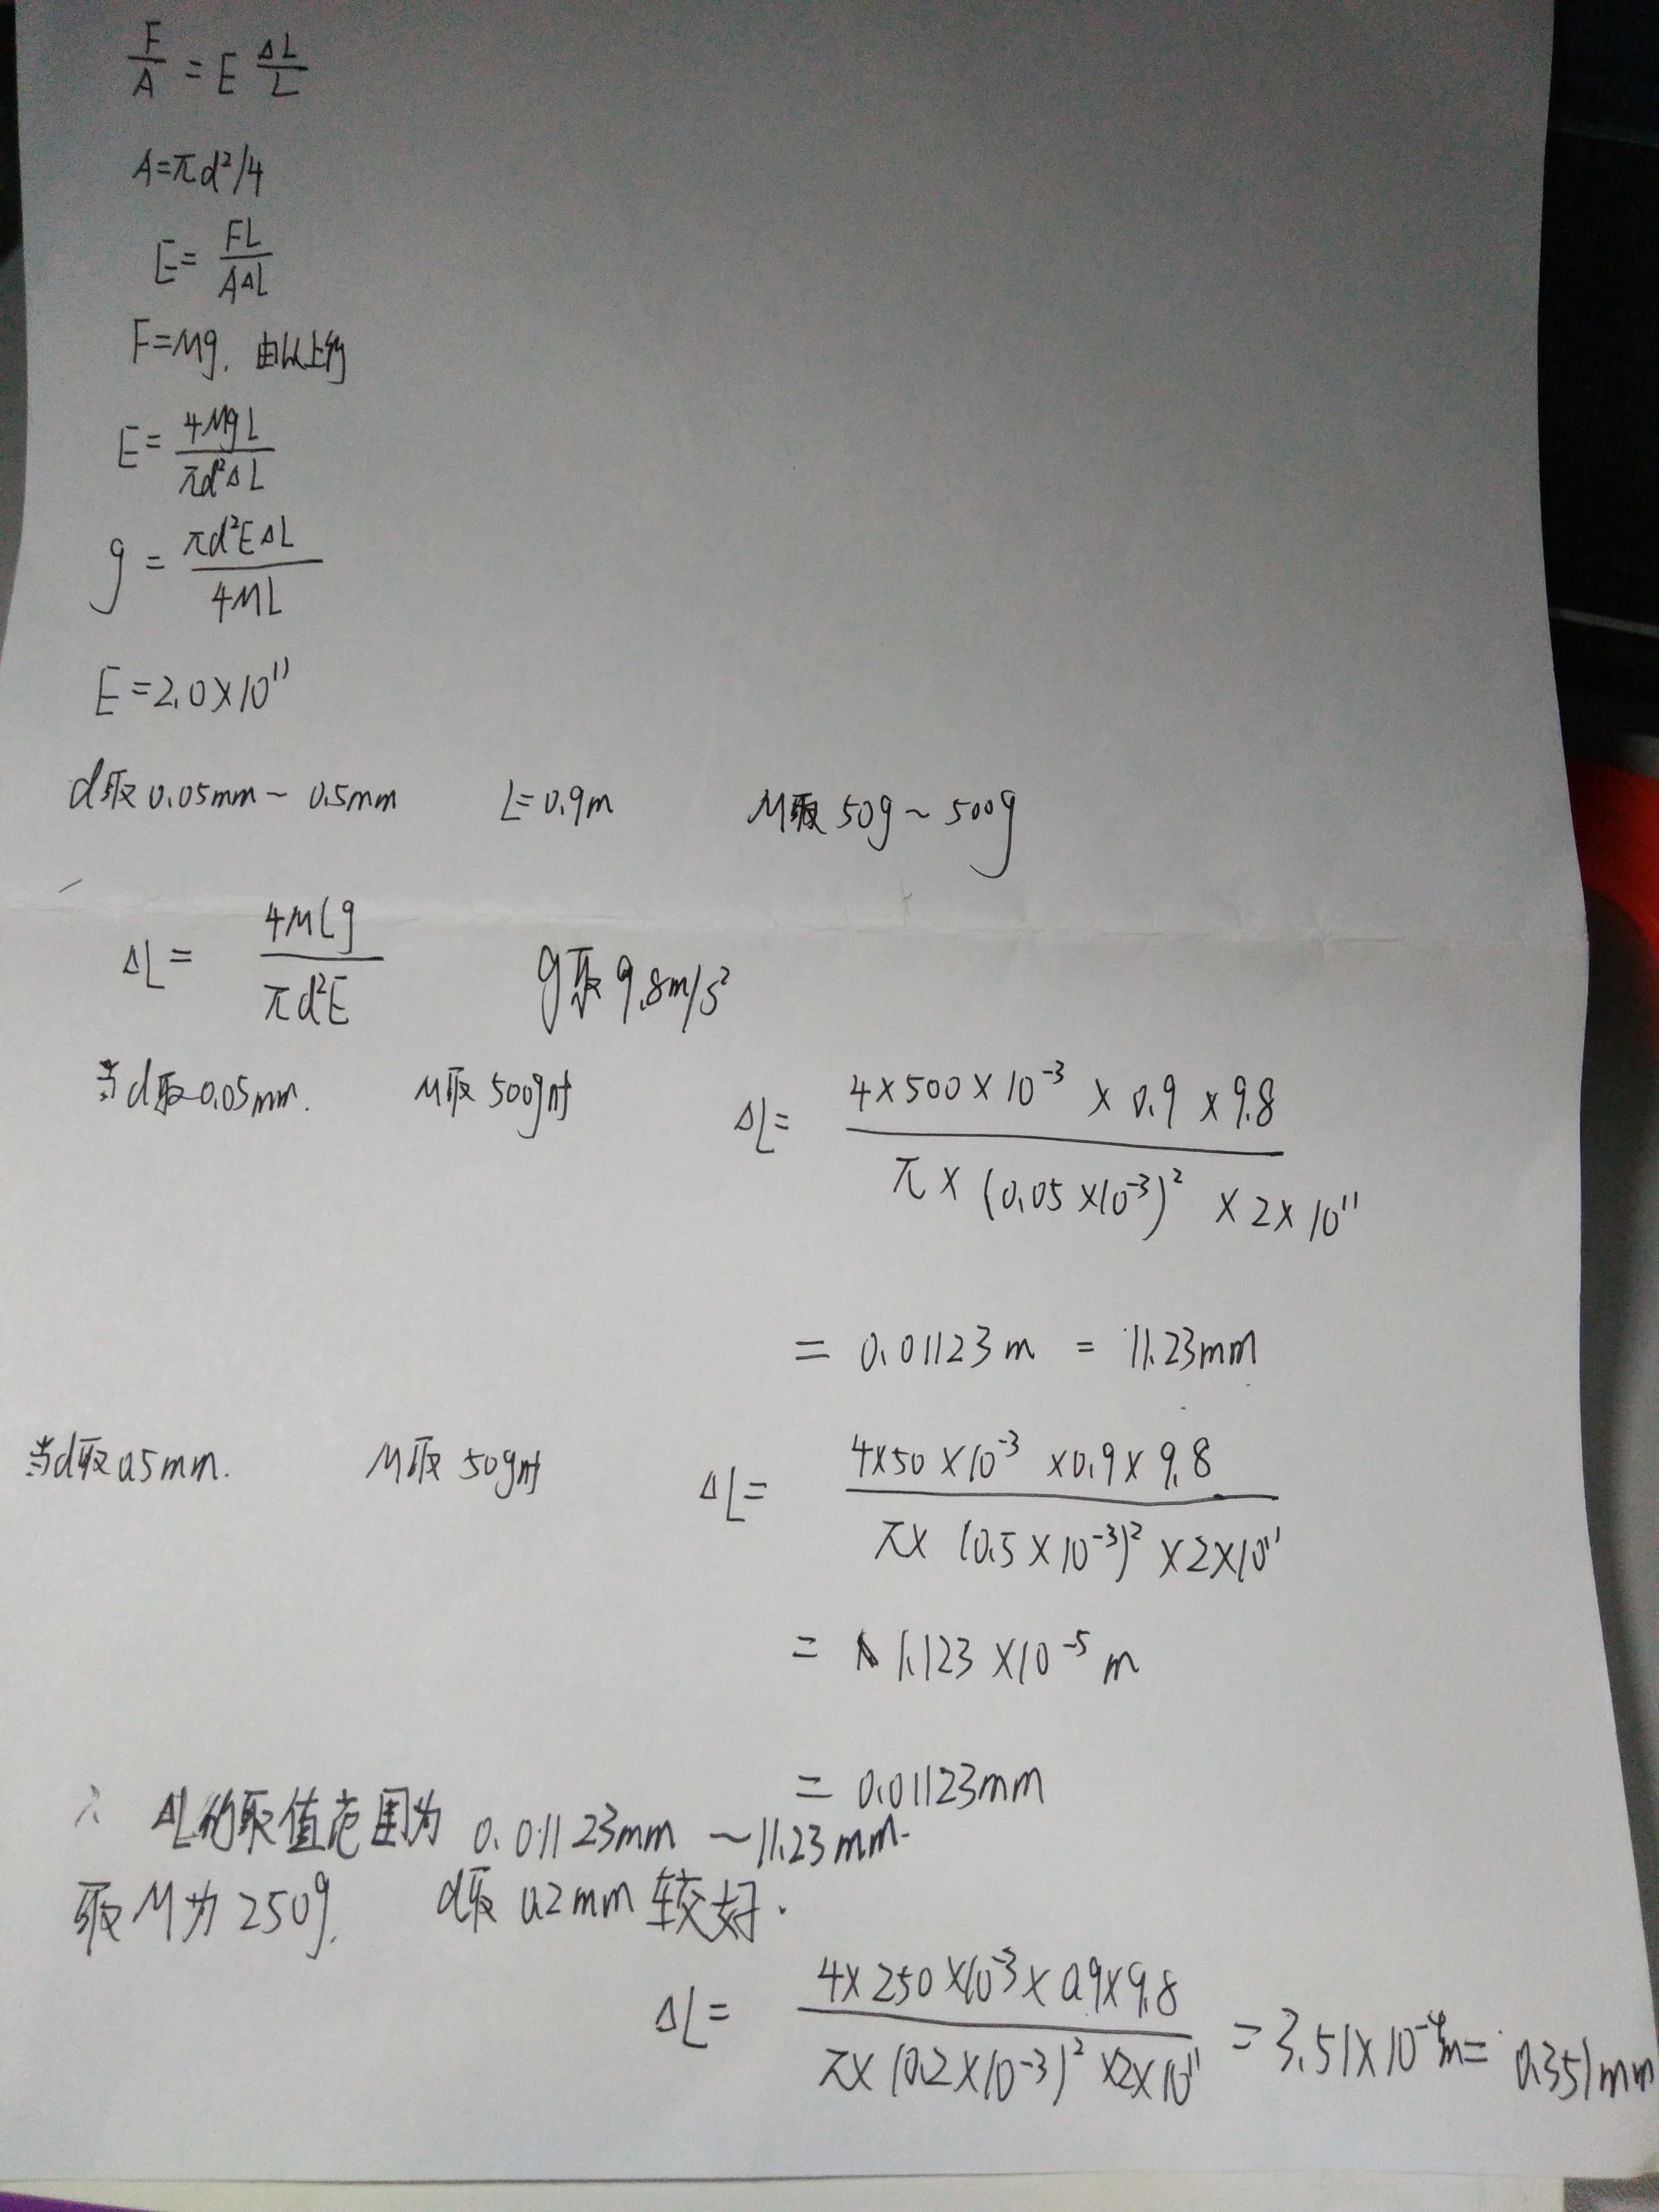 F/A = E ΔL/L
A=πd²/4
E= FL/AΔL
F=Mg, 由以上的
E= 4MgL/πd²ΔL
g = πd²EΔL/4ML
E=2.0×10¹¹
d取0.05mm~0.5mm L=0.9m M取50g~500g
ΔL= 4MLg/πd²E g取9.8m/s²
当d取0.05mm. M取500g时 ΔL= 4×500×10⁻³×0.9×9.8/π×(0.05×10⁻³)²×2×10¹¹
= 0.01123m = 11.23mm
当d取0.5mm. M取50g时 ΔL= 4×50×10⁻³×0.9×9.8/π×(0.5×10⁻³)²×2×10¹¹
= 1.123×10⁻⁵m
= 0.01123mm
∴ ΔL的取值范围为 0.01123mm~11.23mm.
取M为250g. d取0.2mm较好.
ΔL= 4×250×10⁻³×0.9×9.8/π×(0.2×10⁻³)²×2×10¹¹ = 3.51×10⁻⁴m = 0.351mm